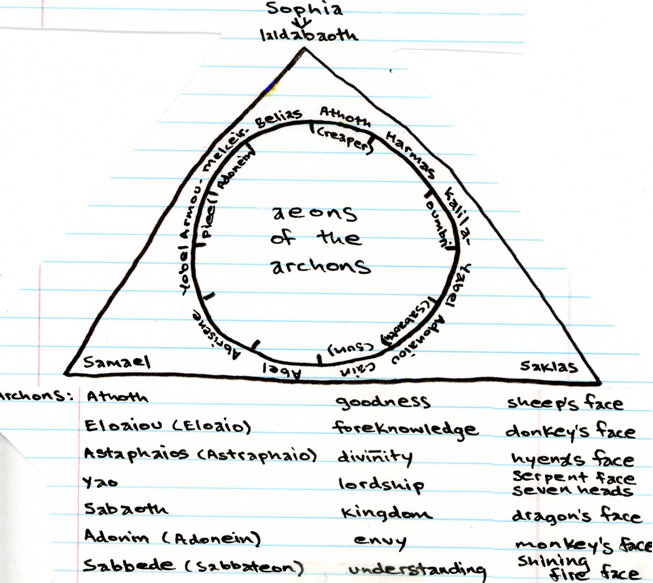 Sophia
Ialdabaoth
Belias
Athoth
(reaper)
Harmas
Kalila-
Oumbri
Yabel Adonaiou
(sabaoth)
cain
(sun)
Abel
Abrisene
Yobel
Armou-
pieel
Melkeir-
Adonein
aeons
of the
archons
Samael
Saklas
archons: Athoth goodness sheep's face
Eloaiou (Eloaio) foreknowledge donkey's face
Astaphaios (Astraphaio) divinity hyena's face
Yao lordship serpent face
seven heads
Sabaoth kingdom dragon's face
Adonin (Adonein) envy monkey's face
Sabbede (Sabbateon) understanding shining
fire face